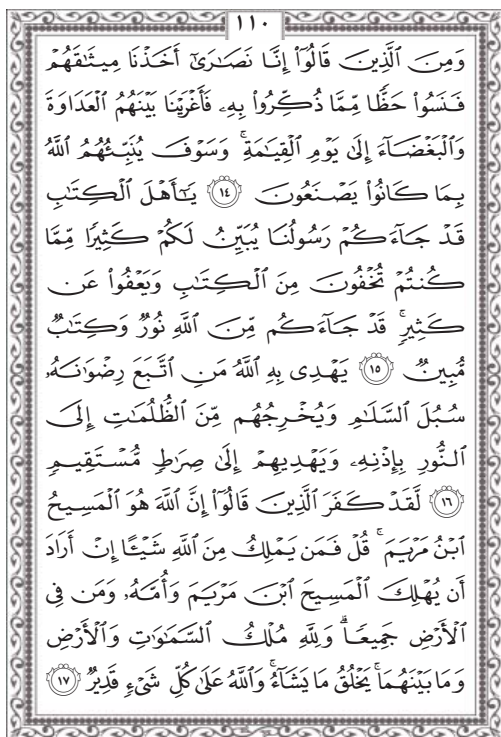 ١١٠
وَمِنَ ٱلَّذِينَ قَالُوٓا۟ إِنَّا نَصَٰرَىٰٓ أَخَذْنَا مِيثَٰقَهُمْ
فَنَسُوا۟ حَظًّا مِّمَّا ذُكِّرُوا۟ بِهِۦ فَأَغْرَيْنَا بَيْنَهُمُ ٱلْعَدَاوَةَ
وَٱلْبَغْضَآءَ إِلَىٰ يَوْمِ ٱلْقِيَٰمَةِ ۚ وَسَوْفَ يُنَبِّئُهُمُ ٱللَّهُ
بِمَا كَانُوا۟ يَصْنَعُونَ ١٤ يَٰٓأَهْلَ ٱلْكِتَٰبِ
قَدْ جَآءَكُمْ رَسُولُنَا يُبَيِّنُ لَكُمْ كَثِيرًا مِّمَّا
كُنتُمْ تُخْفُونَ مِنَ ٱلْكِتَٰبِ وَيَعْفُوا۟ عَن
كَثِيرٍ ۚ قَدْ جَآءَكُم مِّنَ ٱللَّهِ نُورٌ وَكِتَٰبٌ
مُّبِينٌ ١٥ يَهْدِى بِهِ ٱللَّهُ مَنِ ٱتَّبَعَ رِضْوَٰنَهُۥ
سُبُلَ ٱلسَّلَٰمِ وَيُخْرِجُهُم مِّنَ ٱلظُّلُمَٰتِ إِلَى
ٱلنُّورِ بِإِذْنِهِۦ وَيَهْدِيهِمْ إِلَىٰ صِرَٰطٍ مُّسْتَقِيمٍ
١٦ لَّقَدْ كَفَرَ ٱلَّذِينَ قَالُوٓا۟ إِنَّ ٱللَّهَ هُوَ ٱلْمَسِيحُ
ٱبْنُ مَرْيَمَ ۚ قُلْ فَمَن يَمْلِكُ مِنَ ٱللَّهِ شَيْـًٔا إِنْ أَرَادَ
أَن يُهْلِكَ ٱلْمَسِيحَ ٱبْنَ مَرْيَمَ وَأُمَّهُۥ وَمَن فِى
ٱلْأَرْضِ جَمِيعًا ۗ وَلِلَّهِ مُلْكُ ٱلسَّمَٰوَٰتِ وَٱلْأَرْضِ
وَمَا بَيْنَهُمَا ۚ يَخْلُقُ مَا يَشَآءُ ۚ وَٱللَّهُ عَلَىٰ كُلِّ شَىْءٍ قَدِيرٌ ١٧